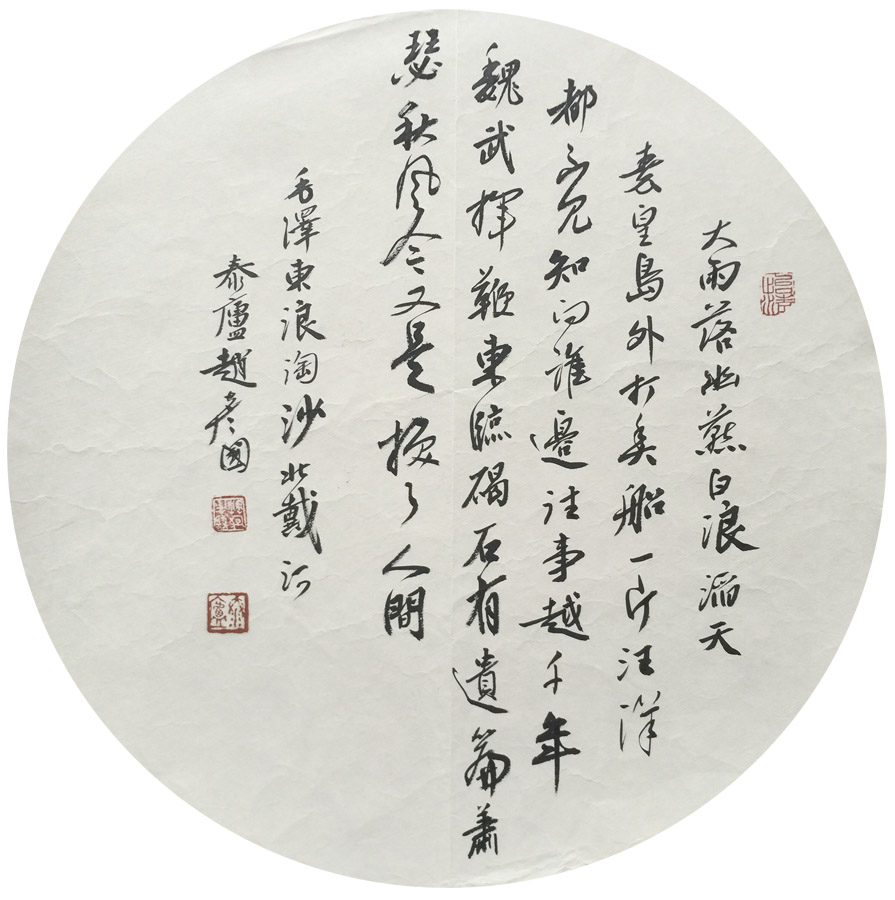 大雨落幽燕白浪滔天
秦皇島外打魚船一片汪洋
都不見知向誰邊往事越千年
魏武揮鞭東臨碣石有遺篇蕭
瑟秋風今又是換了人間
毛澤東浪淘沙北戴河
泰廬趙彥國